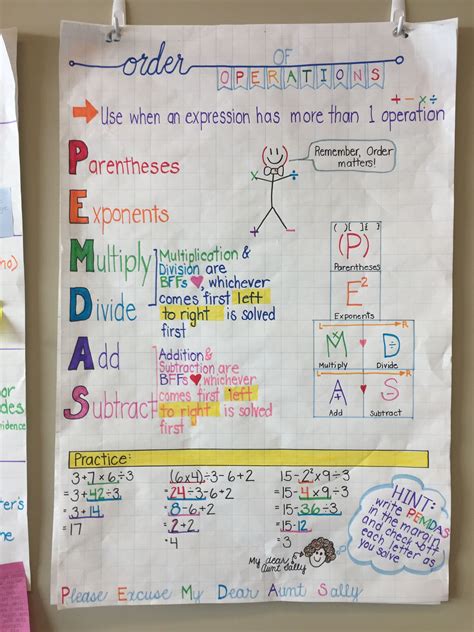 order OF OPERATIONS
+ - × ÷
Use when an expression has more than 1 operation
Parentheses
Remember, Order
matters!
Exponents
Multiply
Multiplication &
Division are
BFFs♥, whichever
comes first left
to right is solved
first
Divide
Add
Addition &
Subtraction are
BFFs♥ whichever
comes first left
to right is solved
first
Subtract
( ) [ ] { }
(P)
Parentheses
E²
Exponents
L R
M D
Multiply Divide
L R
A S
Add Subtract
Practice:
3+7×6÷3
=3+42÷3
=3+14
=17
(6×4)÷3-6+2
=24÷3-6+2
=8-6+2
=2+2
=4
15-2²×9÷3
=15-4×9÷3
=15-36÷3
=15-12
=3
HINT:
write PEMDAS
in the margin
and check off
each letter as
you solve
My dear
aunt Sally
Please Excuse My Dear Aunt Sally